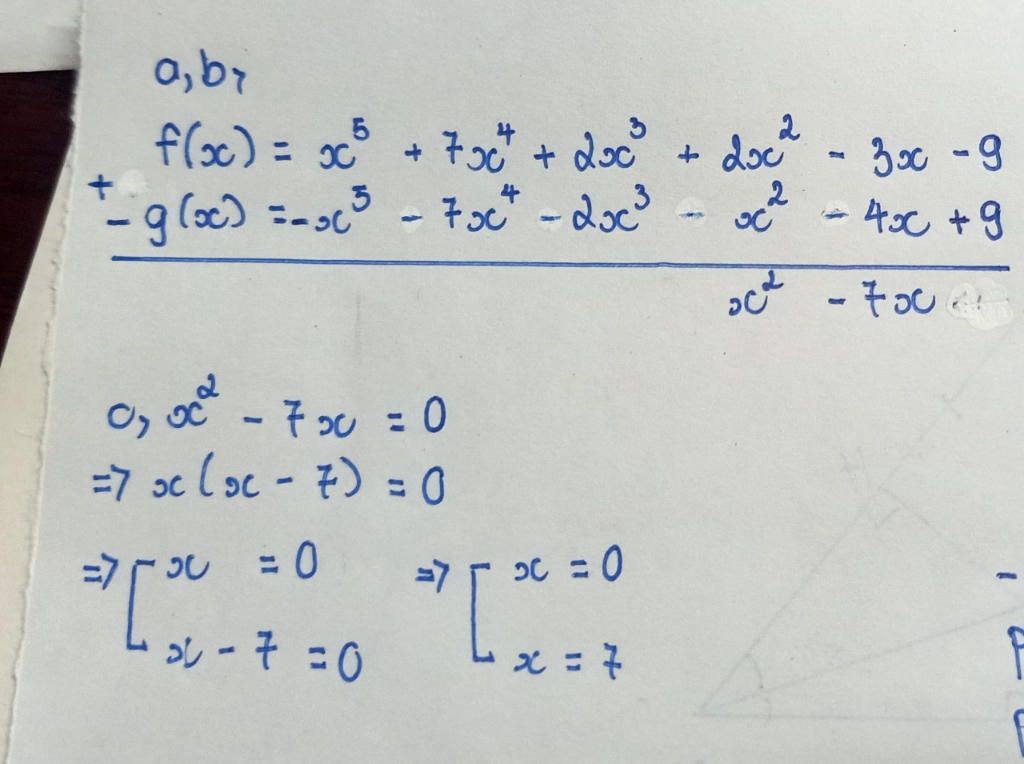 a, b,
f(x) = x⁵ + 7x⁴ + 2x³ + 2x² - 3x - 9
+
- g(x) = -x⁵ - 7x⁴ - 2x³ - x² - 4x + 9
x² - 7x
c, x² - 7x = 0
=> x(x - 7) = 0
=> [ x = 0 => [ x = 0
x - 7 = 0 x = 7